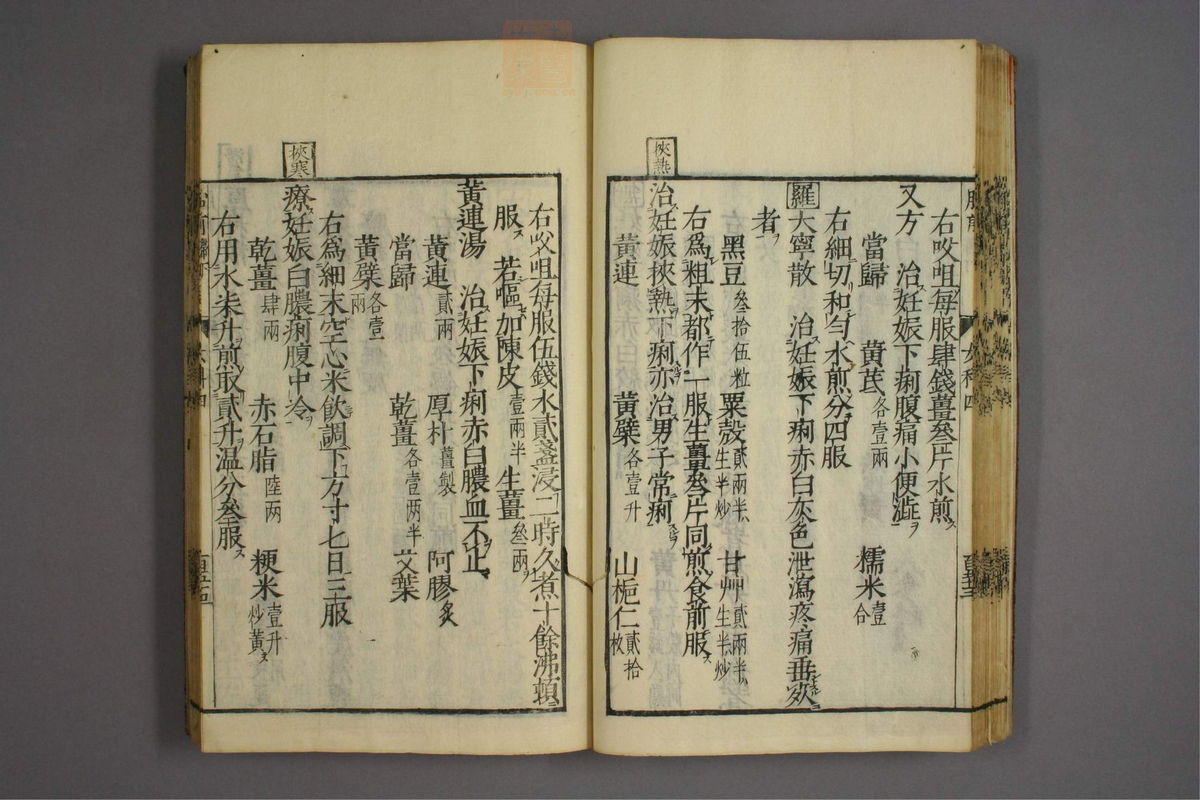 右㕮咀每服肆錢薑叄片水煎
又方 治妊娠下痢腹痛小便澁
當歸 黃芪各壹兩 糯米壹合
右細切和勻水煎分四服
羅 大寧散 治妊娠下痢赤白灰色泄瀉疼痛垂死
者
黑豆叄拾伍粒 粟殼貳兩半半生半炒 甘艸貳兩半半生半炒
右爲粗末都作一服生薑叄片同煎食前服
挾熱
治妊娠挾熱下痢亦治男子常痢
黃連 黃蘗各壹升 山梔仁貳拾枚
右㕮咀每服伍錢水貳盞浸二時久煮十餘沸頓
服 若嘔加陳皮壹兩半 生薑叄兩
黃連湯 治妊娠下痢赤白膿血不止
黃連貳兩 厚朴薑製 阿膠炙
當歸 乾薑各壹两半 艾葉
黃蘗各壹兩
右爲細末空心米飮調下方寸七日三服
挾寒
療妊娠白膿痢腹中冷
乾薑肆兩 赤石脂陸两 粳米壹升炒黃
右用水柒升煎取貳升温分叄服